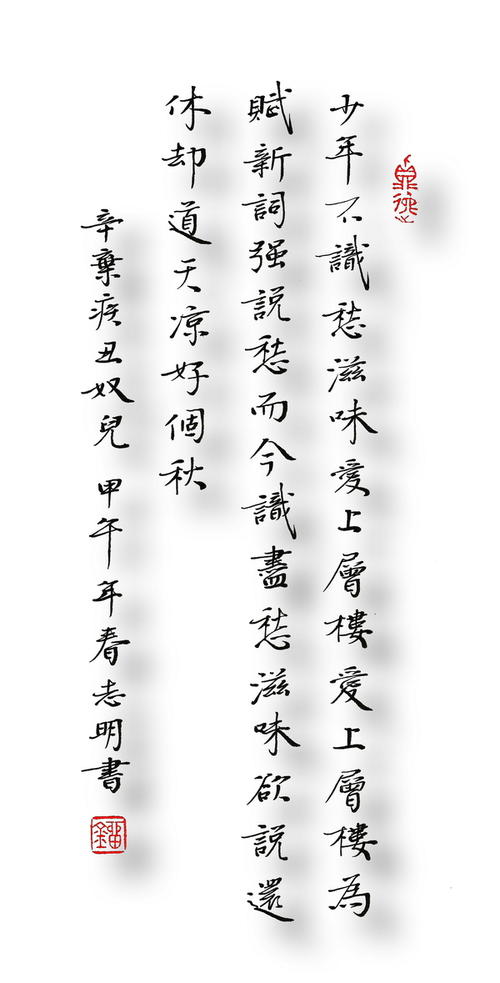 少年不識愁滋味愛上層樓愛上層樓為
賦新詞强說愁而今識盡愁滋味欲說還
休却道天涼好個秋
辛棄疾丑奴兒 甲午年春志明書